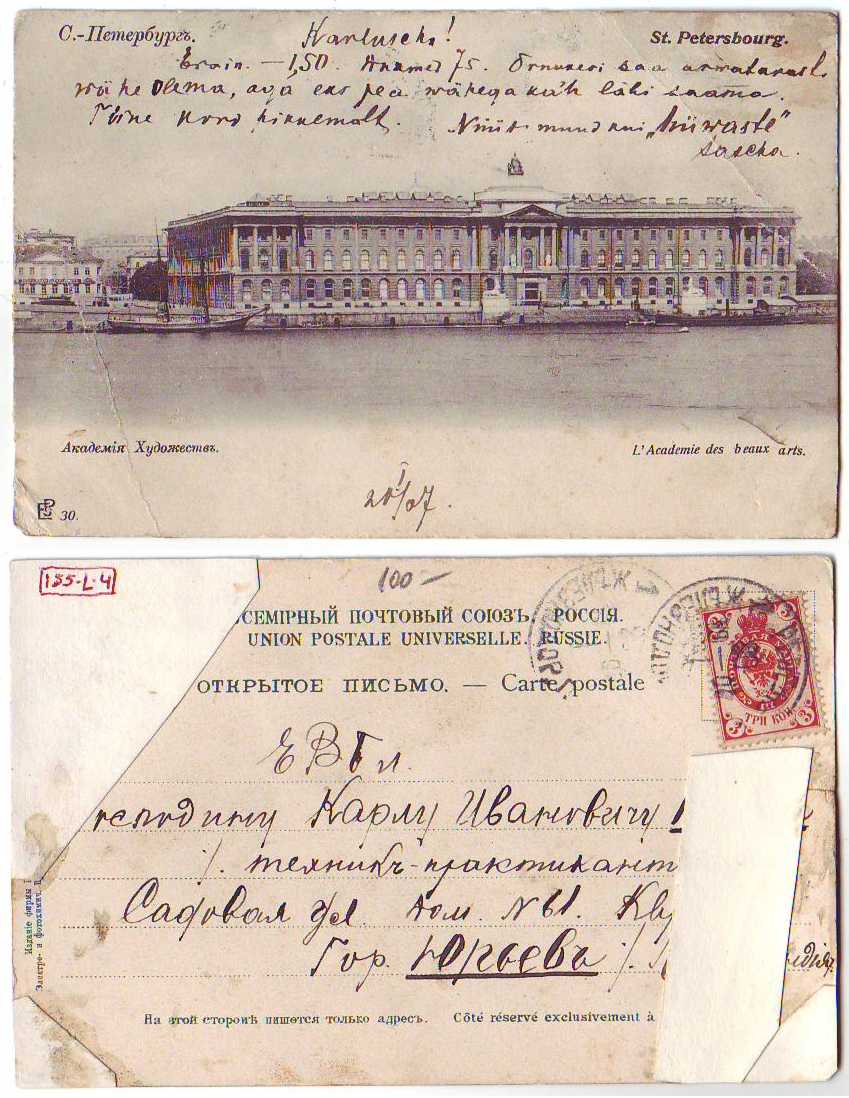 С.-Петербургъ.
St. Petersbourg.
Karluscha!
Erain. — 1,50. Andmed 75. Ornuneri saa arwatawasti
wähe olema, aga eks pea wähega kah läbi saama.
Tõine kord pikkemalt. Nüüt muud kui „hüwaste"
Sascha.
Академія Художествъ.
L'Academie des beaux arts.
30.
20/I 07.
135-L-4
100 —
ВСЕМІРНЫЙ ПОЧТОВЫЙ СОЮЗЪ. РОССІЯ.
UNION POSTALE UNIVERSELLE. RUSSIE.
ОТКРЫТОЕ ПИСЬМО. — Carte postale
ТРИ КОП
Е В Бл.
господину Карлу Ивановичу
техникъ-практикант
Садовая ул. дом. №61. Кв
Гор. Юрьевъ
Изданіе фирмы
Электро- и фотохимич.
На этой сторонѣ пишется только адресъ. Côté réservé exclusivement à